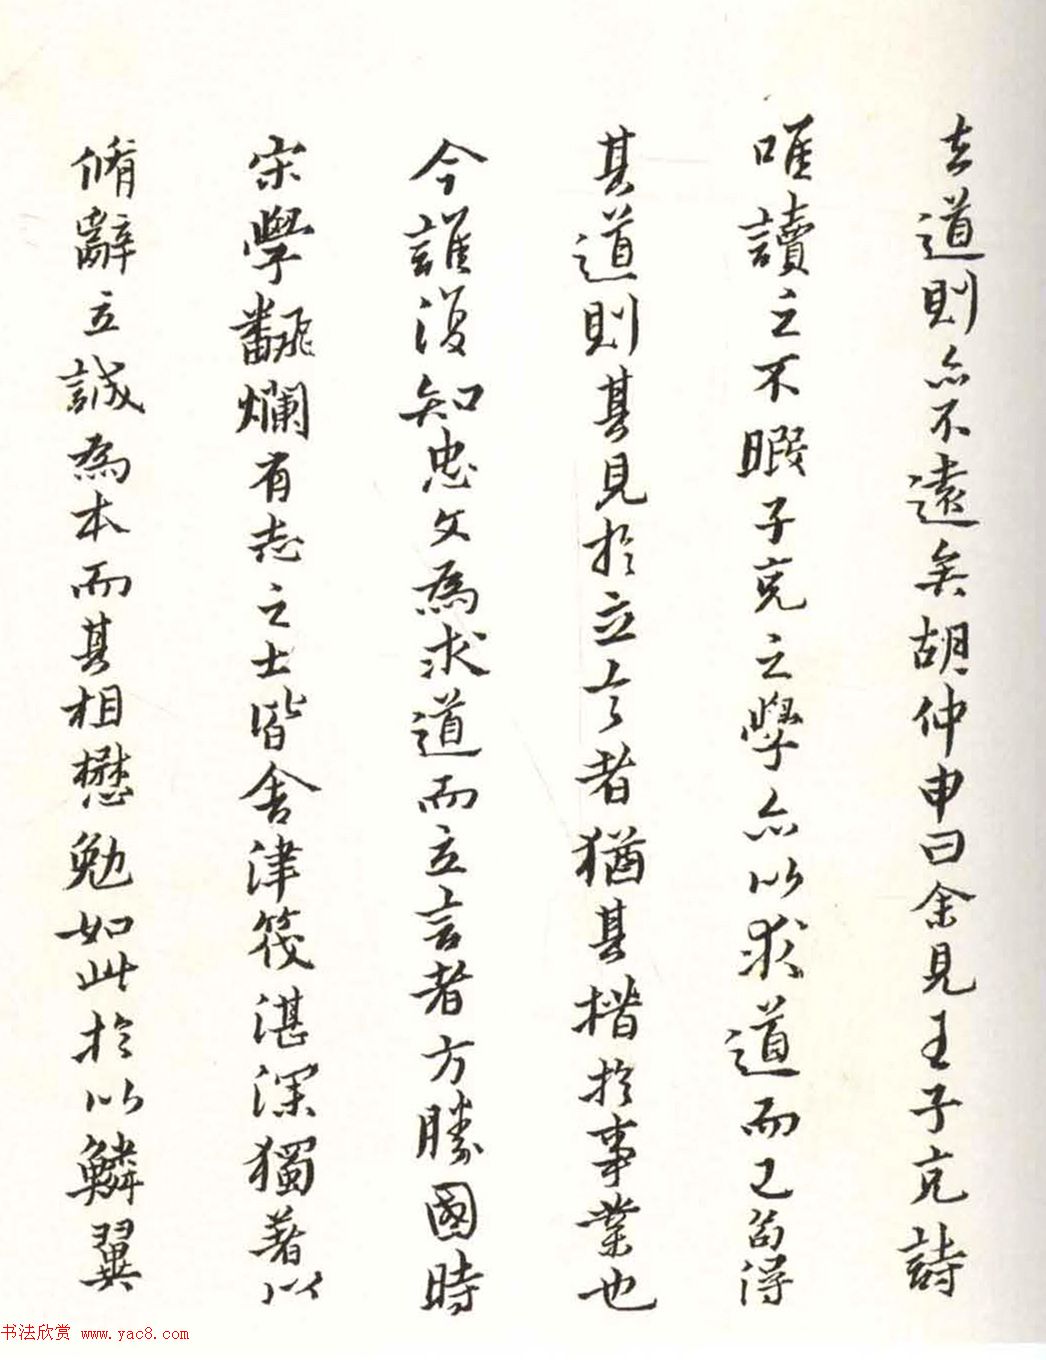 去道則亦不遠矣胡仲申曰余見王子充詩
唯讀之不暇子充之學亦以求道而已苟得
其道則其見於立言者猶其措於事業也
今誰復知忠文為求道而立言者方勝國時
宋學飜爛有志之士皆舍津筏湛深獨著以
脩辭立誠為本而其相懋勉如此於以鱗翼
书法欣赏 www.yac8.com